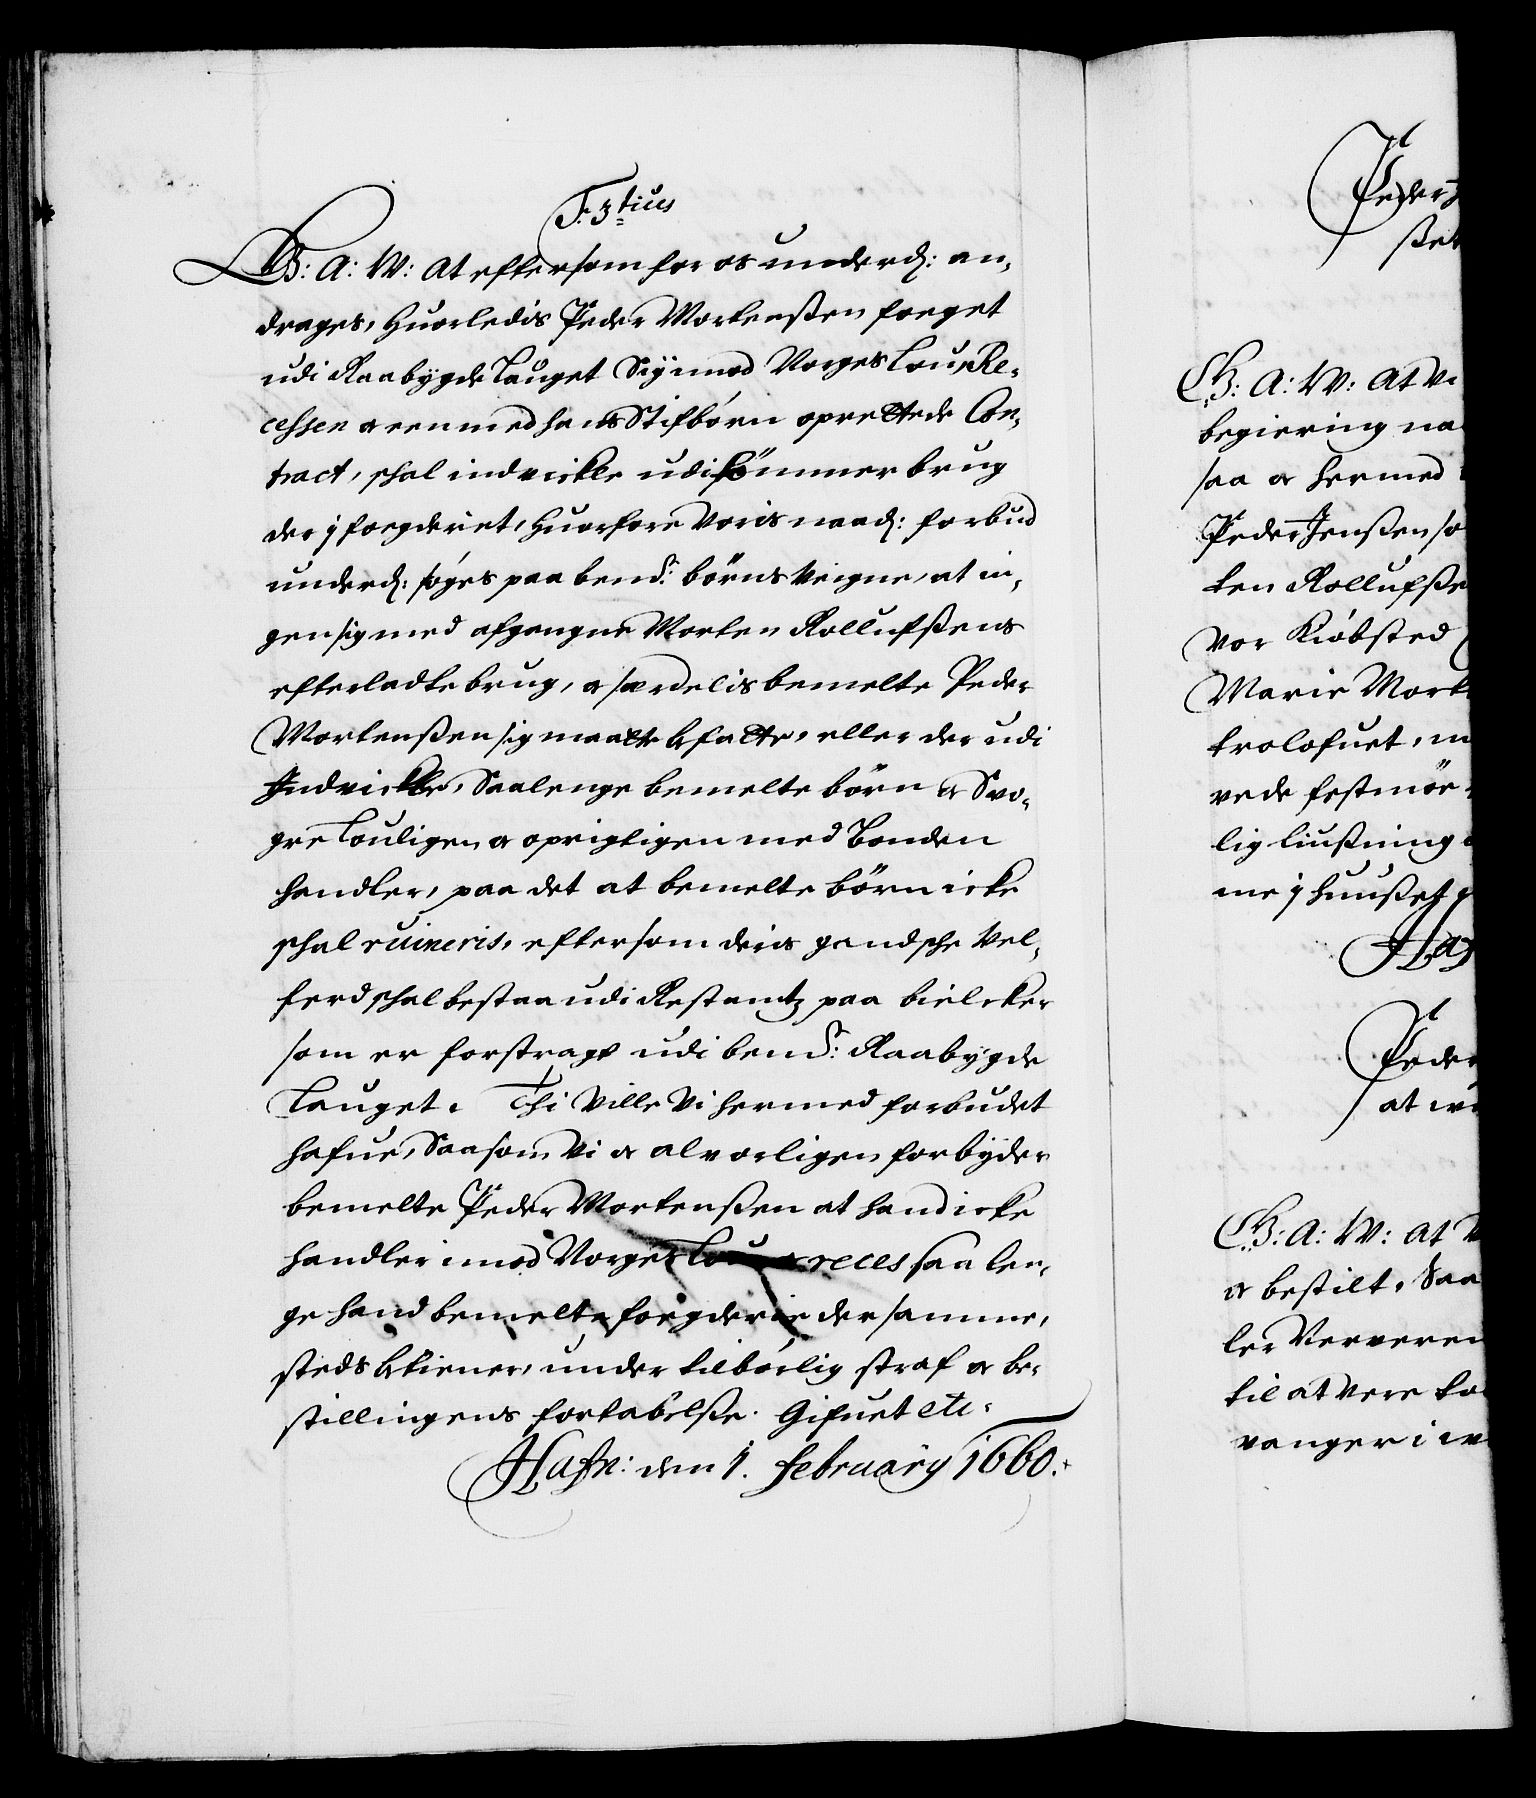 F. 3tius
G: A: W: At eftersom for os underd: an-
drages, Huorledis Peder Mortenßen foeget
udi Raabygde Lauget Sig imod Norges Lou, Re-
cessen oc een med hans Stifbörn oprettede Con-
tract, skal indvickle udi tömmer brug
der j foegderiet, Huorfore voris naad: forbud
underd: söges paa bend: börns veigne, at in-
gen sig med afgangne Morten Rollufßens
efterladte brug, oc særdelis bemelte Peder
Mortenßen sig maatte befatte, eller der udi
Indvickle, Saalenge bemelte börn oc Svo-
gre Louligen oc oprigtigen med Bonden
handler, paa det at bemelte börn icke
skal ruineris, eftersom deris gandske Vel-
ferd skal bestaa udi Restantz paa bielcker
som er forstragt udi bend: Raabygde
Lauget. Thi Ville Vi hermed forbudet
hafue, Saasom Vi oc alvorligen forbyder
bemelte Peder Mortenßen at hand icke
handler imod Norges Lou oc reces saa len-
ge hand bemelte foegderie der samme-
steds betiener, under tilbörlig straf oc be-
stillingens fortabelße. Gifuet etc.
Hafn: den 1. February 1660.
Peder
ßet
G: A: W: At Vi
begiering na
saa oc hermed
Peder Jenßen so
ten Rollufße
vor Kiöbsted
Marie Mort
trolofuet, m
vede festmöe
lig liusning
me j huußet
Haf
Peder
at
G: A: W: At V
oc bestilt, Saa
ler Ververen
til at vere to
vanger i